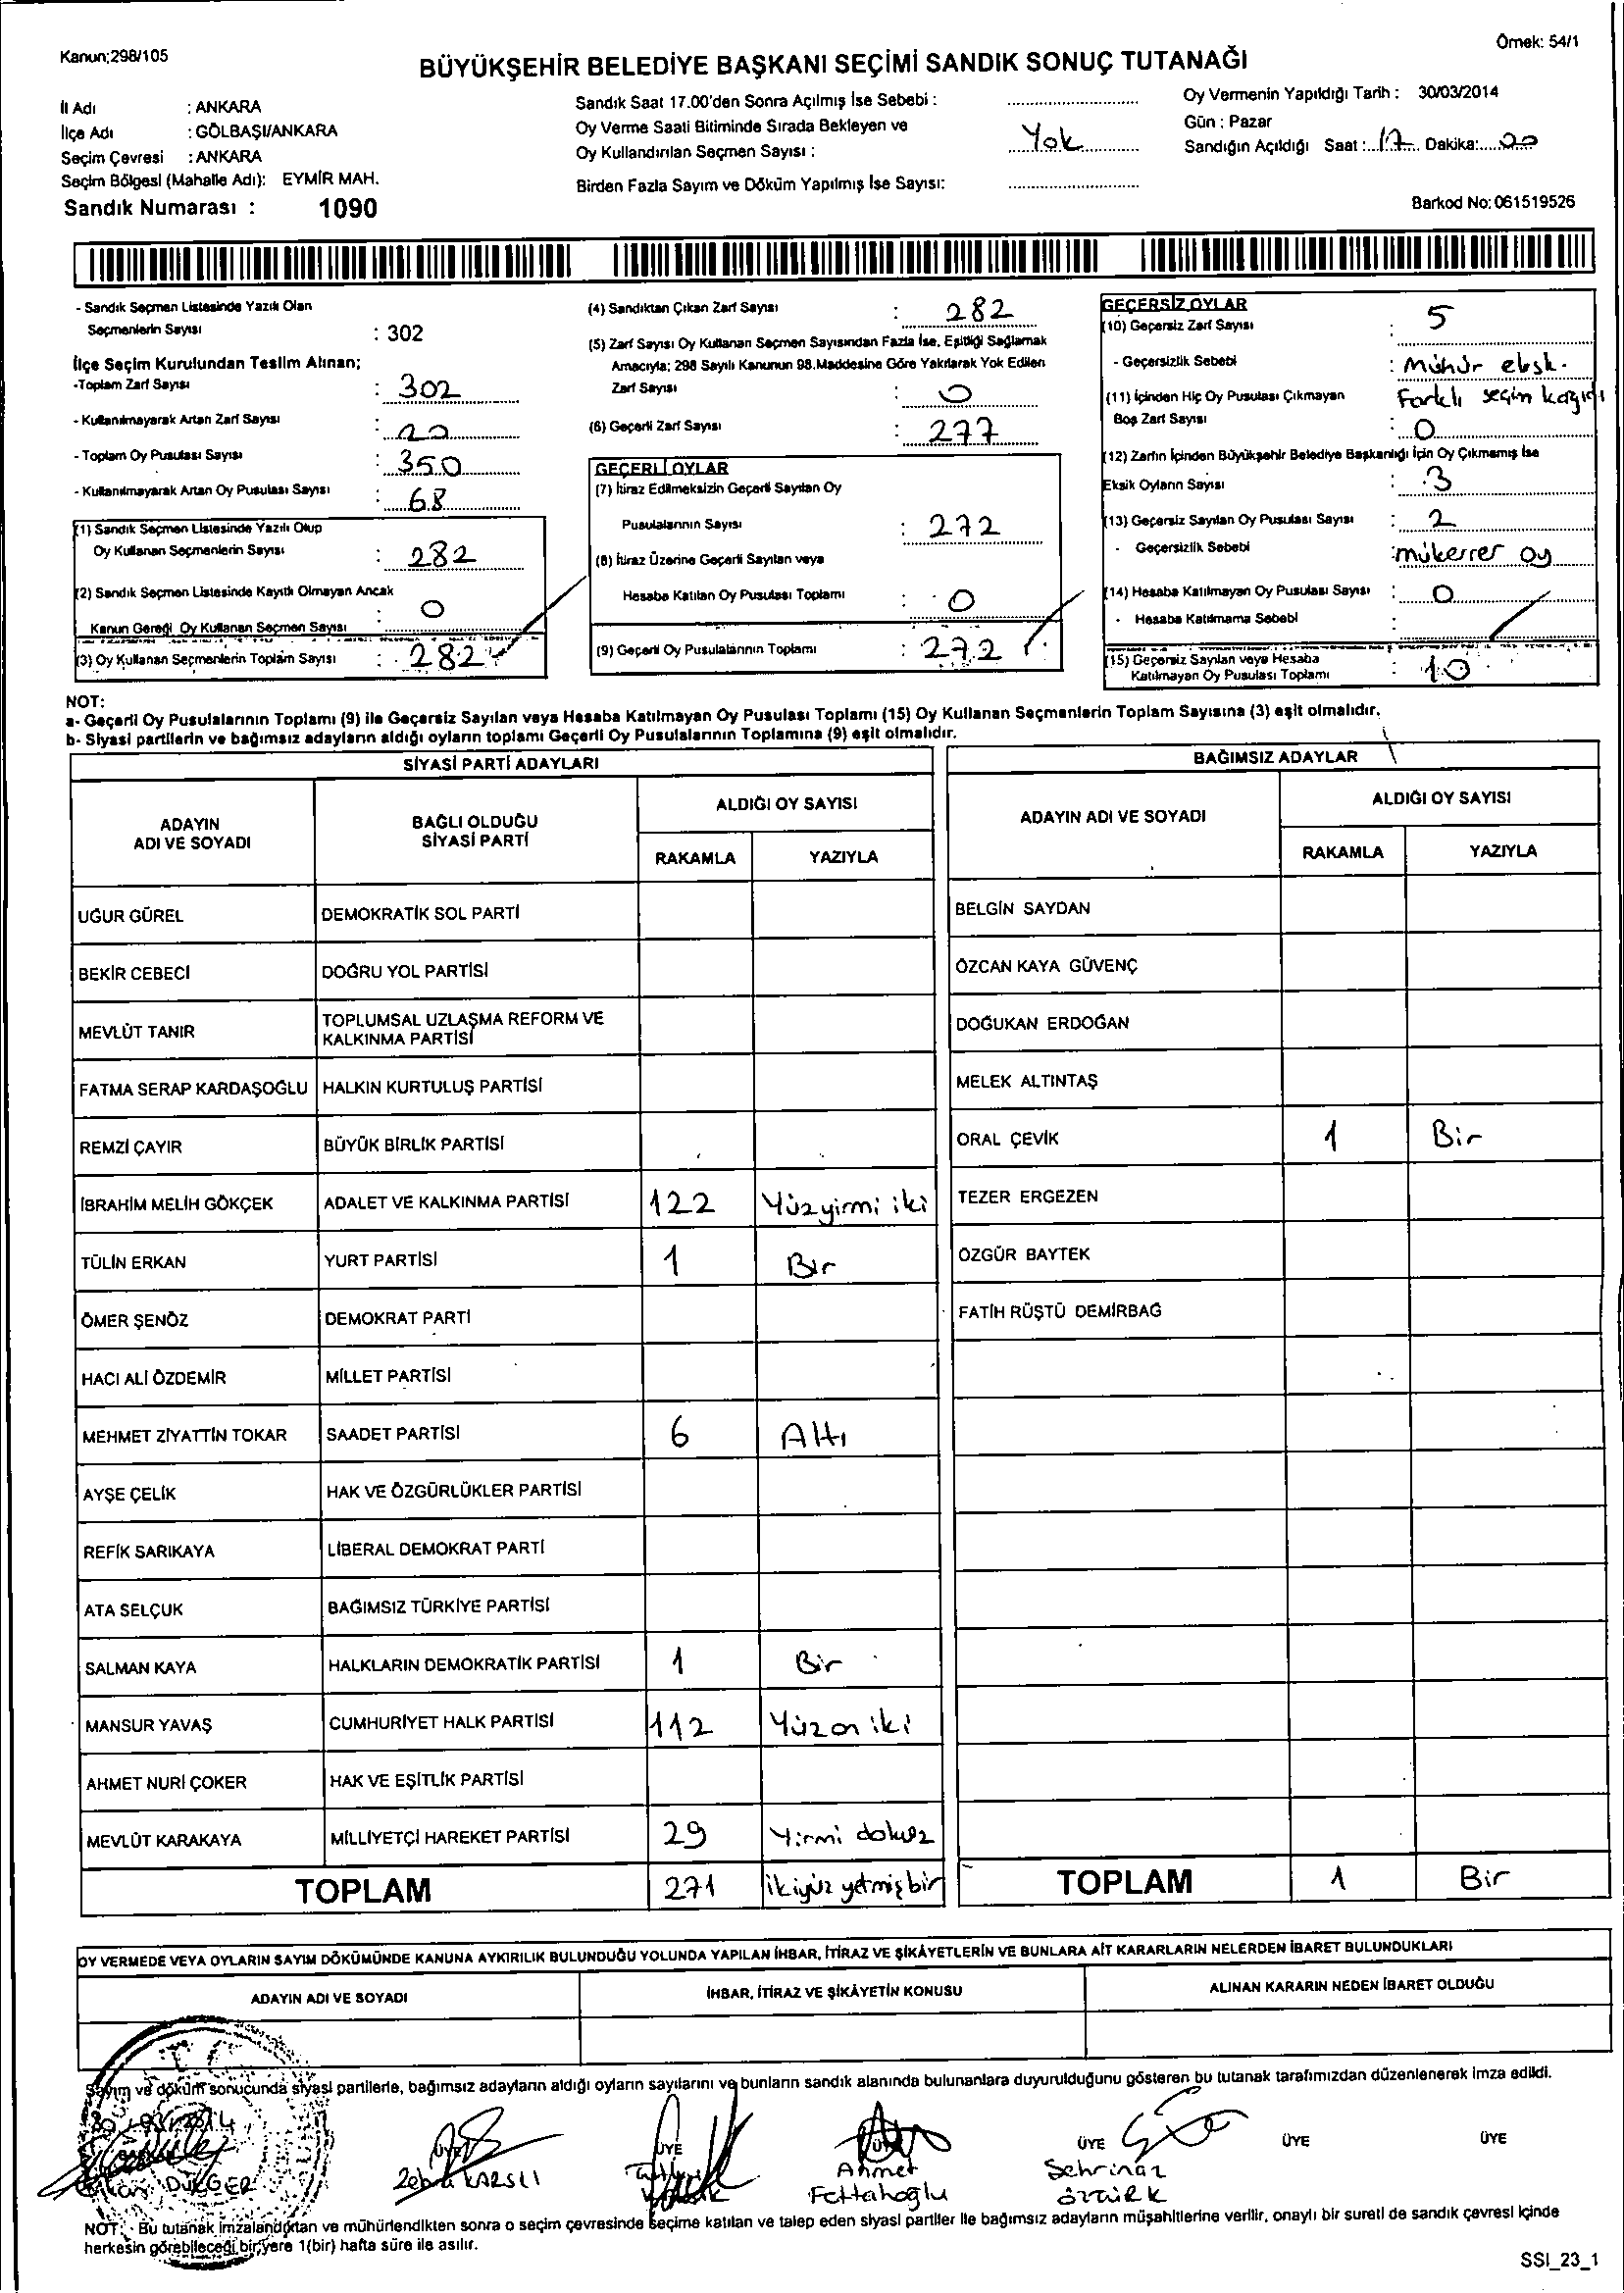 Kanun;298/105
Örnek: 54/1
BÜYÜKŞEHİR BELEDİYE BAŞKANI SEÇİMİ SANDIK SONUÇ TUTANAĞI
İl Adı : ANKARA
İlçe Adı : GÖLBAŞI/ANKARA
Seçim Çevresi : ANKARA
Seçim Bölgesi (Mahalle Adı): EYMİR MAH.
Sandık Numarası : 1090
Sandık Saat 17.00'den Sonra Açılmış İse Sebebi :
Oy Verme Saati Bitiminde Sırada Bekleyen ve
Oy Kullandırılan Seçmen Sayısı : Yok
Birden Fazla Sayım ve Döküm Yapılmış İse Sayısı:
Oy Vermenin Yapıldığı Tarih : 30/03/2014
Gün : Pazar
Sandığın Açıldığı Saat : 17 Dakika: 20
Barkod No: 061519526
- Sandık Seçmen Listesinde Yazılı Olan
Seçmenlerin Sayısı : 302
İlçe Seçim Kurulundan Teslim Alınan;
-Toplam Zarf Sayısı : 302
- Kullanılmayarak Artan Zarf Sayısı : 20
- Toplam Oy Pusulası Sayısı : 350
- Kullanılmayarak Artan Oy Pusulası Sayısı : 68
(1) Sandık Seçmen Listesinde Yazılı Olup
Oy Kullanan Seçmenlerin Sayısı : 282
(2) Sandık Seçmen Listesinde Kayıtlı Olmayan Ancak
Kanun Gereği Oy Kullanan Seçmen Sayısı : 0
(3) Oy Kullanan Seçmenlerin Toplam Sayısı : 282
(4) Sandıktan Çıkan Zarf Sayısı : 282
(5) Zarf Sayısı Oy Kullanan Seçmen Sayısından Fazla İse, Eşitliği Sağlamak
Amacıyla; 298 Sayılı Kanunun 98.Maddesine Göre Yakılarak Yok Edilen
Zarf Sayısı : 0
(6) Geçerli Zarf Sayısı : 277
GEÇERLİ OYLAR
(7) İtiraz Edilmeksizin Geçerli Sayılan Oy
Pusulalarının Sayısı : 272
(8) İtiraz Üzerine Geçerli Sayılan veya
Hesaba Katılan Oy Pusulası Toplamı : 0
(9) Geçerli Oy Pusulalarının Toplamı : 272
GEÇERSİZ OYLAR
(10) Geçersiz Zarf Sayısı : 5
- Geçersizlik Sebebi : Mühür eksk.
Farklı seçim kağıdı
(11) İçinden Hiç Oy Pusulası Çıkmayan
Boş Zarf Sayısı : 0
(12) Zarfın İçinden Büyükşehir Belediye Başkanlığı İçin Oy Çıkmamış İse
Eksik Oyların Sayısı : 3
(13) Geçersiz Sayılan Oy Pusulası Sayısı : 2
- Geçersizlik Sebebi : mükerrer oy
(14) Hesaba Katılmayan Oy Pusulası Sayısı : 0
- Hesaba Katılmama Sebebi :
(15) Geçersiz Sayılan veya Hesaba
Katılmayan Oy Pusulası Toplamı : 10
NOT:
a- Geçerli Oy Pusulalarının Toplamı (9) ile Geçersiz Sayılan veya Hesaba Katılmayan Oy Pusulası Toplamı (15) Oy Kullanan Seçmenlerin Toplam Sayısına (3) eşit olmalıdır.
b- Siyasi partilerin ve bağımsız adayların aldığı oyların toplamı Geçerli Oy Pusulalarının Toplamına (9) eşit olmalıdır.
SİYASİ PARTİ ADAYLARI
ADAYIN ADI VE SOYADI
BAĞLI OLDUĞU SİYASİ PARTİ
ALDIĞI OY SAYISI
RAKAMLA YAZIYLA
UĞUR GÜREL DEMOKRATİK SOL PARTİ
BEKİR CEBECİ DOĞRU YOL PARTİSİ
MEVLÜT TANIR TOPLUMSAL UZLAŞMA REFORM VE KALKINMA PARTİSİ
FATMA SERAP KARDAŞOĞLU HALKIN KURTULUŞ PARTİSİ
REMZİ ÇAYIR BÜYÜK BİRLİK PARTİSİ
İBRAHİM MELİH GÖKÇEK ADALET VE KALKINMA PARTİSİ 122 Yüzyirmi iki
TÜLİN ERKAN YURT PARTİSİ 1 Bir
ÖMER ŞENÖZ DEMOKRAT PARTİ
HACI ALİ ÖZDEMİR MİLLET PARTİSİ
MEHMET ZİYATTİN TOKAR SAADET PARTİSİ 6 Altı
AYŞE ÇELİK HAK VE ÖZGÜRLÜKLER PARTİSİ
REFİK SARIKAYA LİBERAL DEMOKRAT PARTİ
ATA SELÇUK BAĞIMSIZ TÜRKİYE PARTİSİ
SALMAN KAYA HALKLARIN DEMOKRATİK PARTİSİ 1 Bir
MANSUR YAVAŞ CUMHURİYET HALK PARTİSİ 112 Yüzon iki
AHMET NURİ ÇOKER HAK VE EŞİTLİK PARTİSİ
MEVLÜT KARAKAYA MİLLİYETÇİ HAREKET PARTİSİ 29 Yirmi dokuz
TOPLAM 271 ikiyüz yetmişbir
BAĞIMSIZ ADAYLAR
ADAYIN ADI VE SOYADI
ALDIĞI OY SAYISI
RAKAMLA YAZIYLA
BELGİN SAYDAN
ÖZCAN KAYA GÜVENÇ
DOĞUKAN ERDOĞAN
MELEK ALTINTAŞ
ORAL ÇEVİK 1 Bir
TEZER ERGEZEN
ÖZGÜR BAYTEK
FATİH RÜŞTÜ DEMİRBAĞ
TOPLAM 1 Bir
OY VERMEDE VEYA OYLARIN SAYIM DÖKÜMÜNDE KANUNA AYKIRILIK BULUNDUĞU YOLUNDA YAPILAN İHBAR, İTİRAZ VE ŞİKÂYETLERİN VE BUNLARA AİT KARARLARIN NELERDEN İBARET BULUNDUKLARI
ADAYIN ADI VE SOYADI İHBAR, İTİRAZ VE ŞİKÂYETİN KONUSU ALINAN KARARIN NEDEN İBARET OLDUĞU
Sayım ve döküm sonucunda siyasi partilerle, bağımsız adayların aldığı oyların sayılarını ve bunların sandık alanında bulunanlara duyurulduğunu gösteren bu tutanak tarafımızdan düzenlenerek imza edildi.
ÜYE ÜYE ÜYE ÜYE ÜYE ÜYE
DÜLGER
Zehra KARSLI
Ahmet
Fettahoğlu
Şehrinaz
ÖZTÜRK
NOT: Bu tutanak imzalandıktan ve mühürlendikten sonra o seçim çevresinde seçime katılan ve talep eden siyasi partiler ile bağımsız adayların müşahitlerine verilir, onaylı bir sureti de sandık çevresi içinde
herkesin görebileceği bir yere 1(bir) hafta süre ile asılır.
SSI_23_1